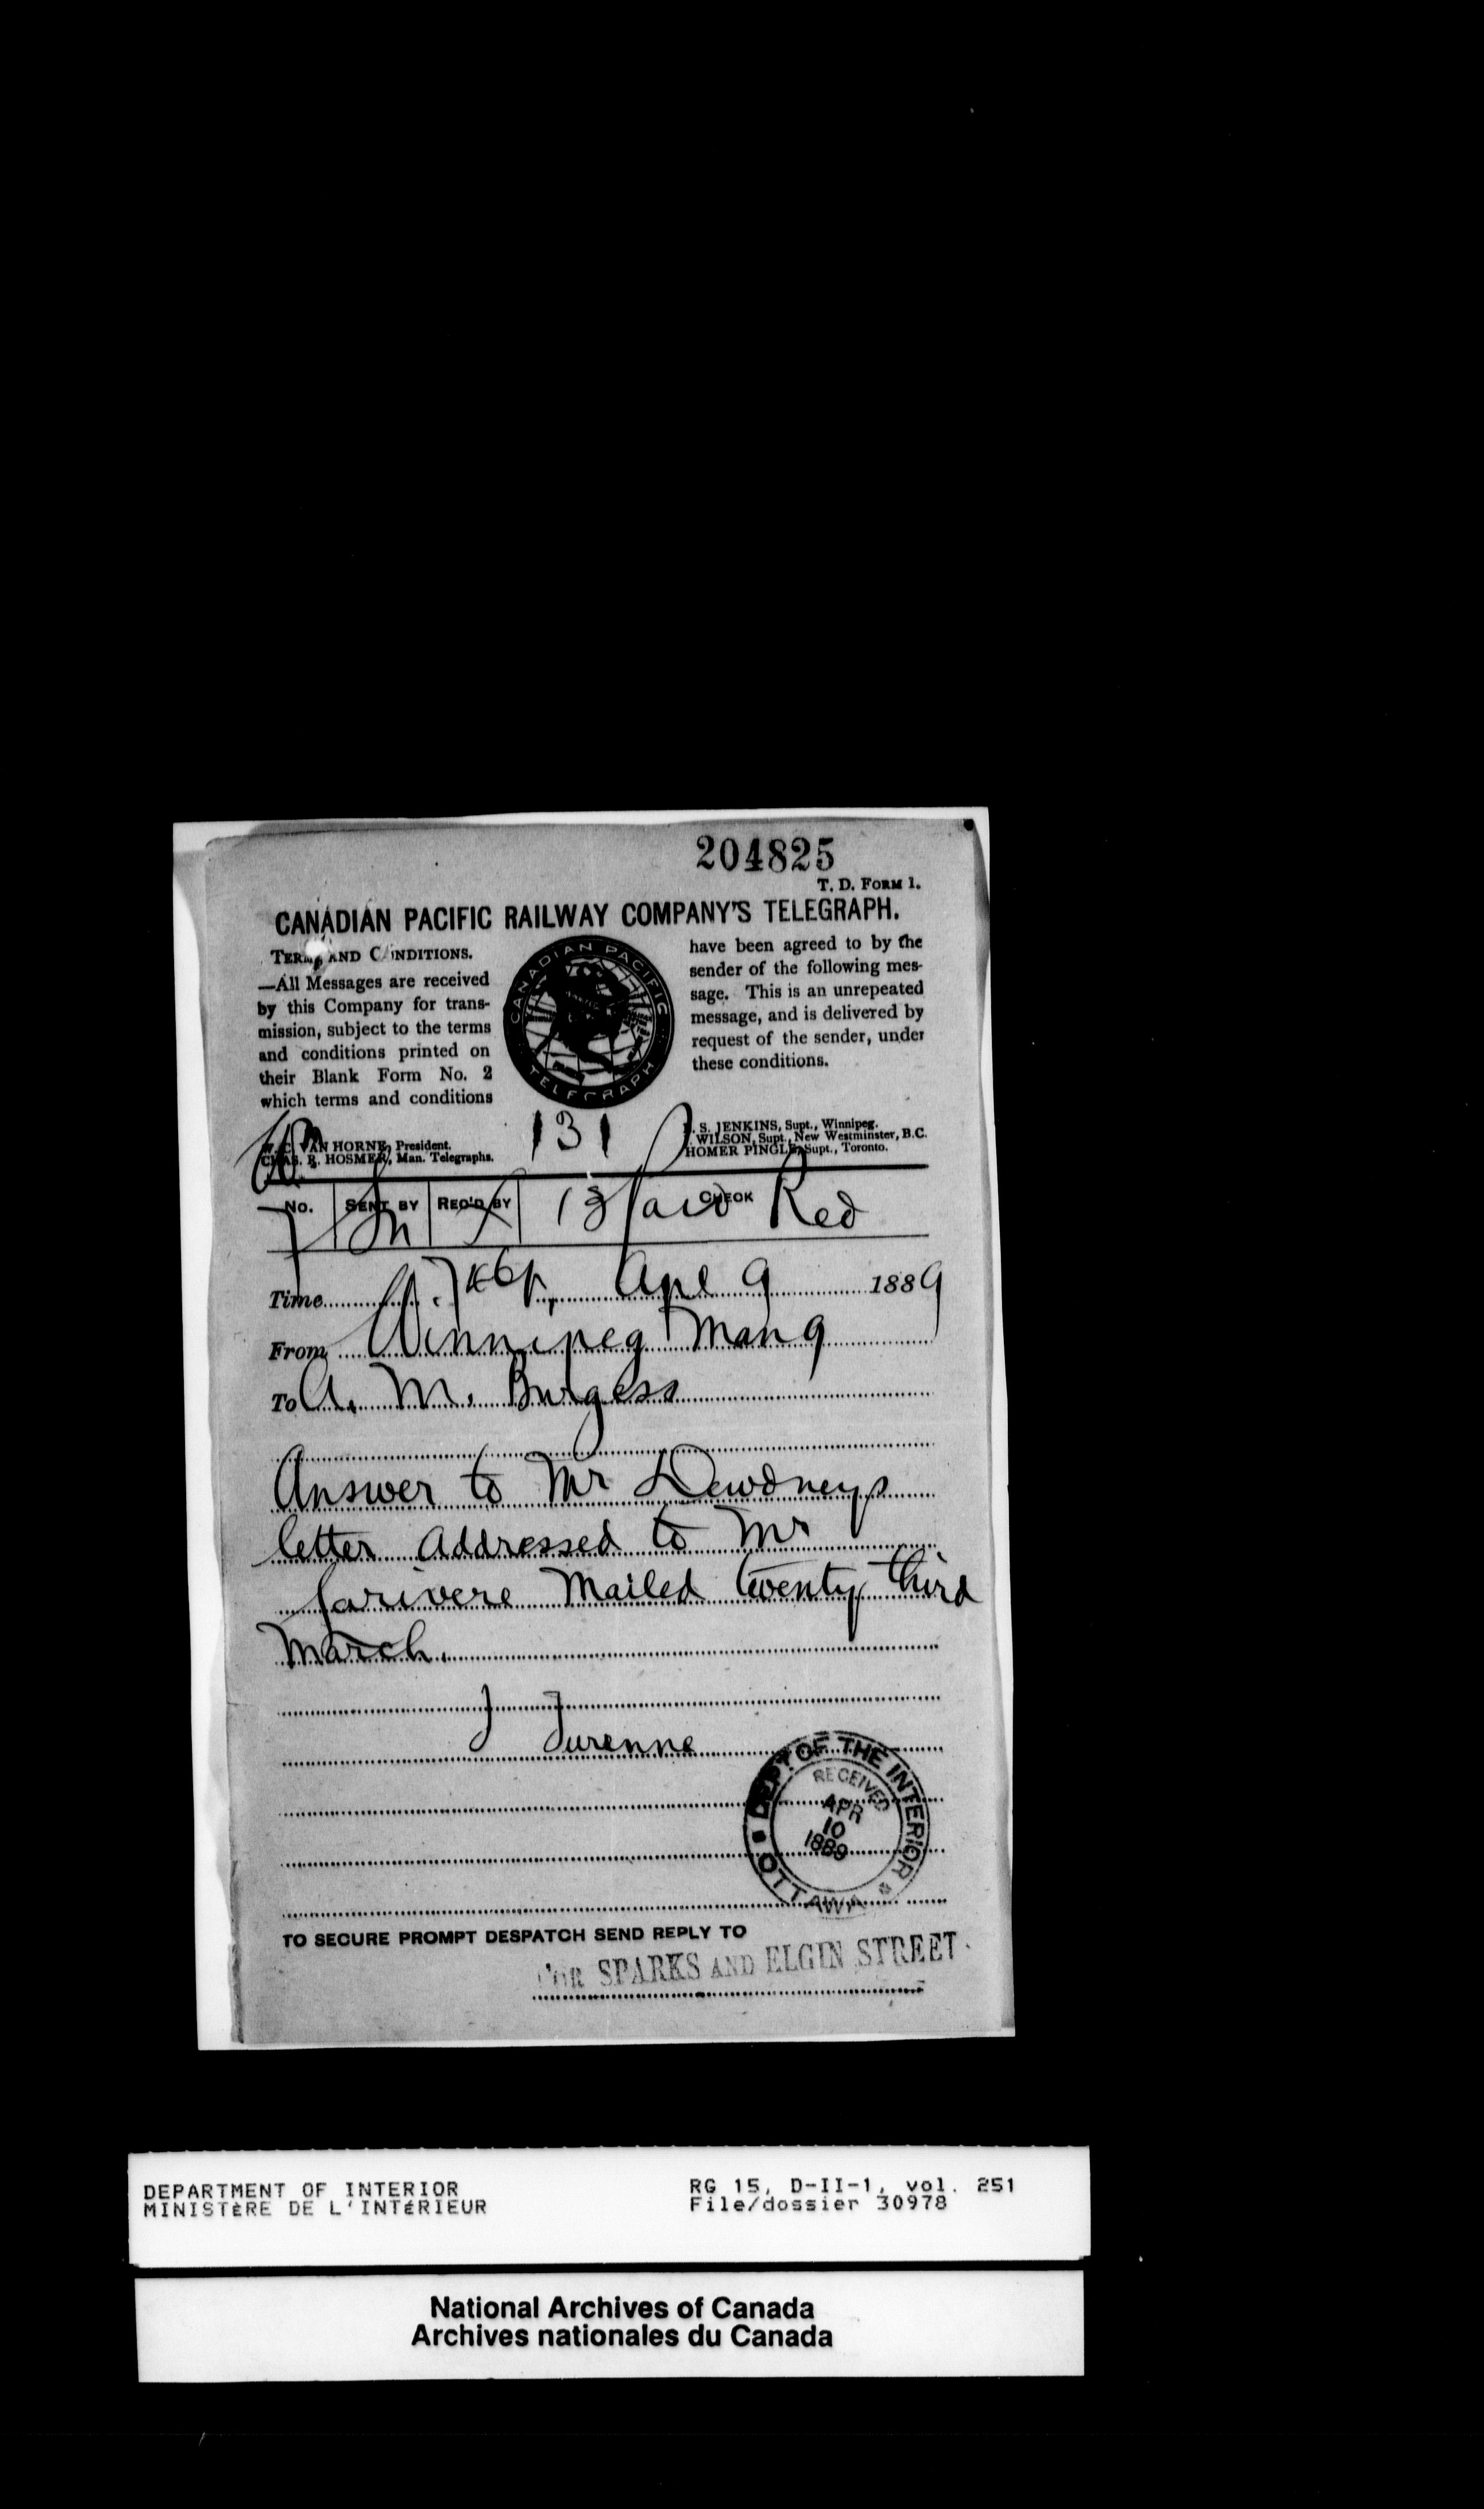 204825
T. D. FORM 1.
CANADIAN PACIFIC RAILWAY COMPANY'S TELEGRAPH.
TERMS AND CONDITIONS.
—All Messages are received
by this Company for trans-
mission, subject to the terms
and conditions printed on
their Blank Form No. 2
which terms and conditions
CANADIAN PACIFIC
TELEGRAPH
have been agreed to by the
sender of the following mes-
sage. This is an unrepeated
message, and is delivered by
request of the sender, under
these conditions.
131
W. C. VAN HORNE, President.
CHAS. R. HOSMER, Man. Telegraphs.
S. JENKINS, Supt., Winnipeg.
WILSON, Supt., New Westminster, B.C.
HOMER PINGLE, Supt., Toronto.
No. SENT BY REC'D BY CHECK
13 Paid Red
Time Apl 9 1889
From Winnipeg Man 9
To A. M. Burgess
Answer to Mr Dewdneys
letter addressed to Mr
Larivere Mailed twenty third
March.
J Turenne
DEPT OF THE INTERIOR
RECEIVED
APR
10
1889
OTTAWA
TO SECURE PROMPT DESPATCH SEND REPLY TO
COR SPARKS AND ELGIN STREET.
DEPARTMENT OF INTERIOR
MINISTÈRE DE L'INTÉRIEUR
RG 15, D-II-1, vol. 251
File/dossier 30978
National Archives of Canada
Archives nationales du Canada